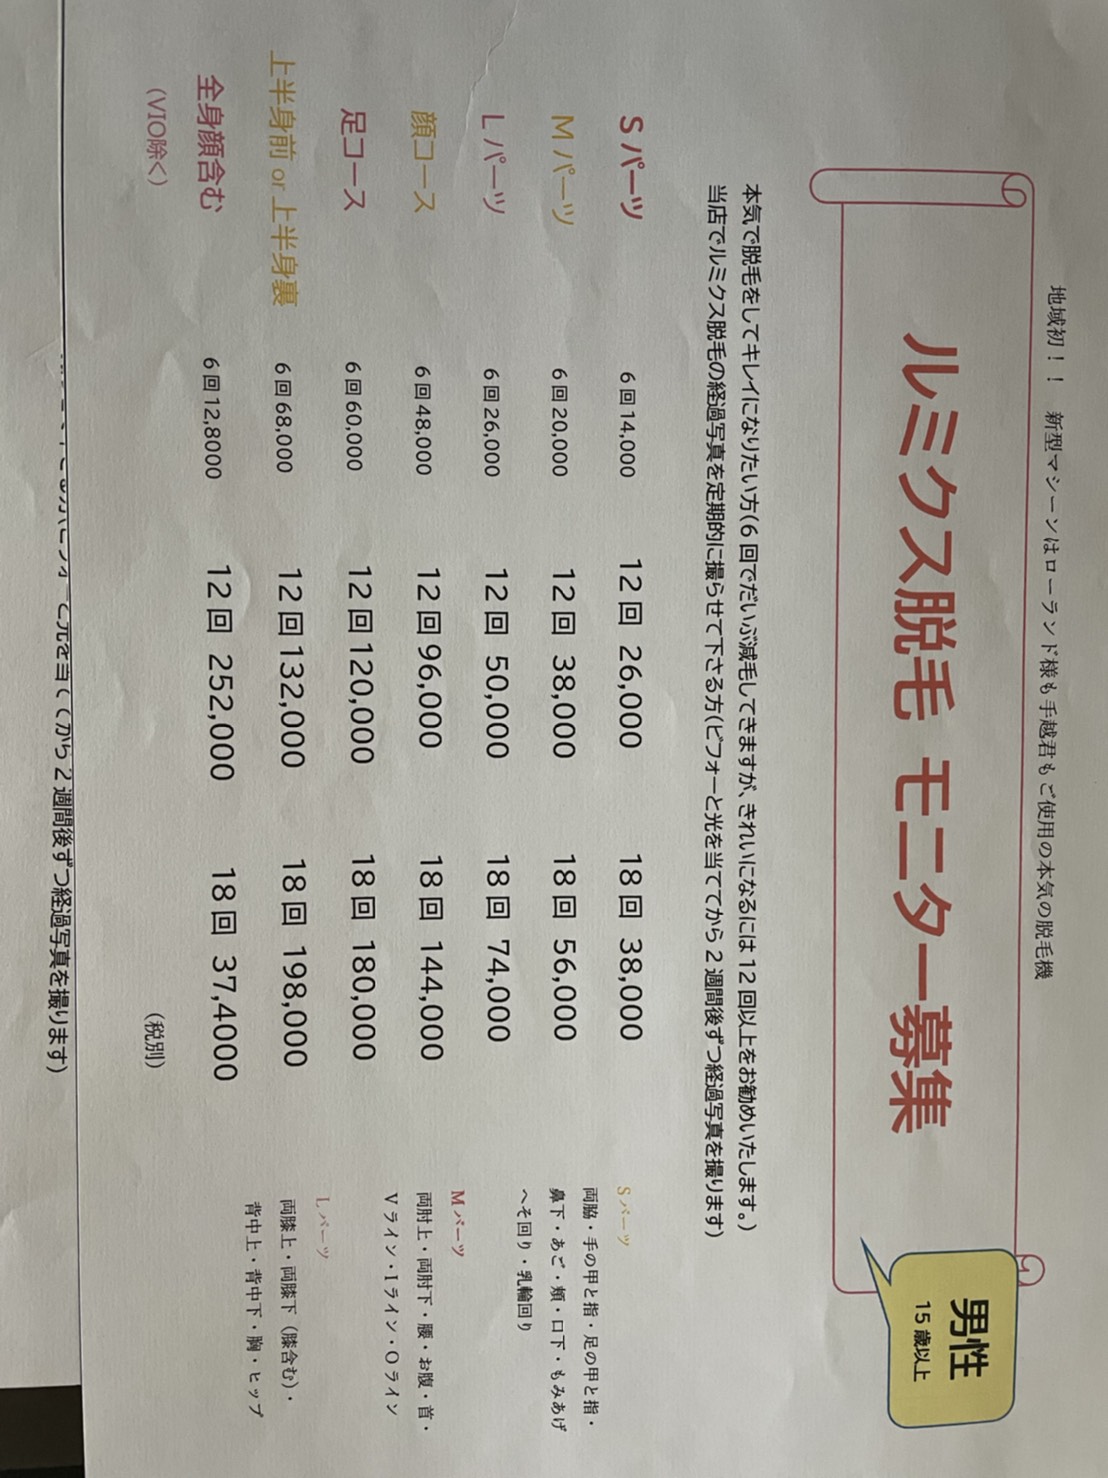 地域初！！ 新型マシーンはローランド様も手越君もご使用の本気の脱毛機
ルミクス脱毛 モニター募集
男性
15歳以上
本気で脱毛をしてキレイになりたい方(6回でだいぶ減毛してきますが、きれいになるには12回以上をお勧めいたします。)
当店でルミクス脱毛の経過写真を定期的に撮らせて下さる方(ビフォーと光を当ててから2週間後ずつ経過写真を撮ります)
Sパーツ 6回14,000 12回 26,000 18回 38,000
Mパーツ 6回20,000 12回 38,000 18回 56,000
Lパーツ 6回26,000 12回 50,000 18回 74,000
顔コース 6回48,000 12回96,000 18回 144,000
足コース 6回60,000 12回120,000 18回 180,000
上半身前 or 上半身裏 6回68,000 12回132,000 18回 198,000
全身顔含む 6回12,8000 12回 252,000 18回 37,4000
(VIO除く)
(税別)
Sパーツ
両脇・手の甲と指・足の甲と指・
鼻下・あご・頬・口下・もみあげ
へそ回り・乳輪回り
Mパーツ
両肘上・両肘下・腰・お腹・首・
Vライン・Iライン・Oライン
Lパーツ
両膝上・両膝下（膝含む）・
背中上・背中下・胸・ヒップ
から2週間後ずつ経過写真を撮ります)